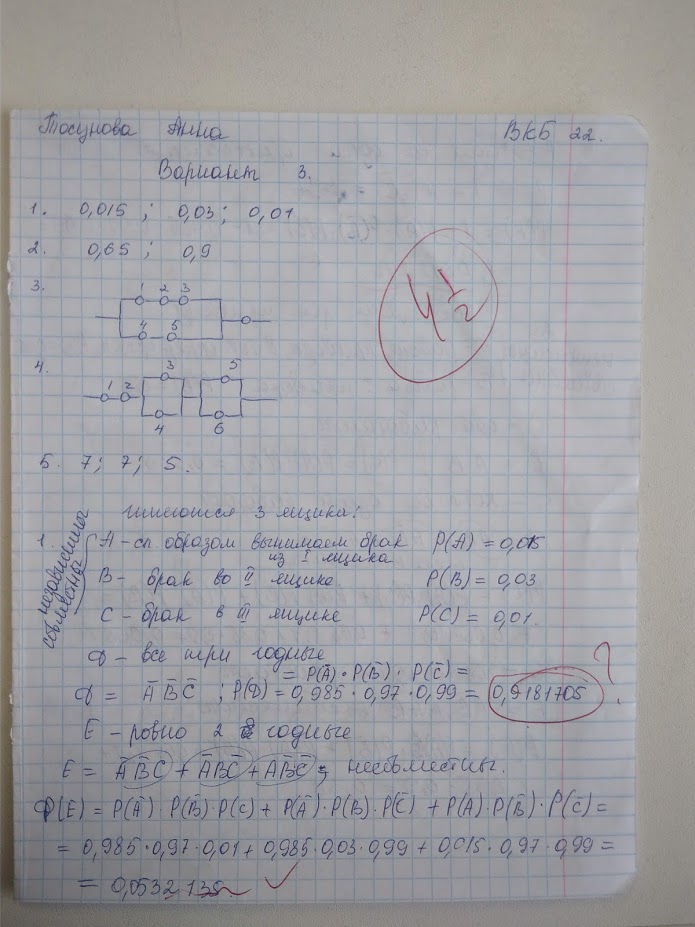 Тосунова Анна ВКБ 22.
Вариант 3.
1. 0,015 ; 0,03 ; 0,01
4 1/2
2. 0,65 ; 0,9
3. 1 2 3
4 5
4. 1 2 3 5
4 6
5. 7; 7; 5.
имеются 3 ящика:
независимы
совместны
1. A - сл. образом вынимаем брак P(A) = 0,015
из I ящика
B - брак во II ящике. P(B) = 0,03
C - брак в III ящике P(C) = 0,01.
D - все три годные
= P(A̅) · P(B̅) · P(C̅) =
D = A̅ B̅ C̅ ; P(D) = 0,985 · 0,97 · 0,99 = 0,9181705 ?
E - ровно 2 годные
E = A̅ B̅ C + A̅ B C̅ + A B̅ C̅ ; несовместны.
P(E) = P(A̅) · P(B̅) · P(C) + P(A̅) · P(B) · P(C̅) + P(A) · P(B̅) · P(C̅) =
= 0,985 · 0,97 · 0,01 + 0,985 · 0,03 · 0,99 + 0,015 · 0,97 · 0,99 =
= 0,0532135